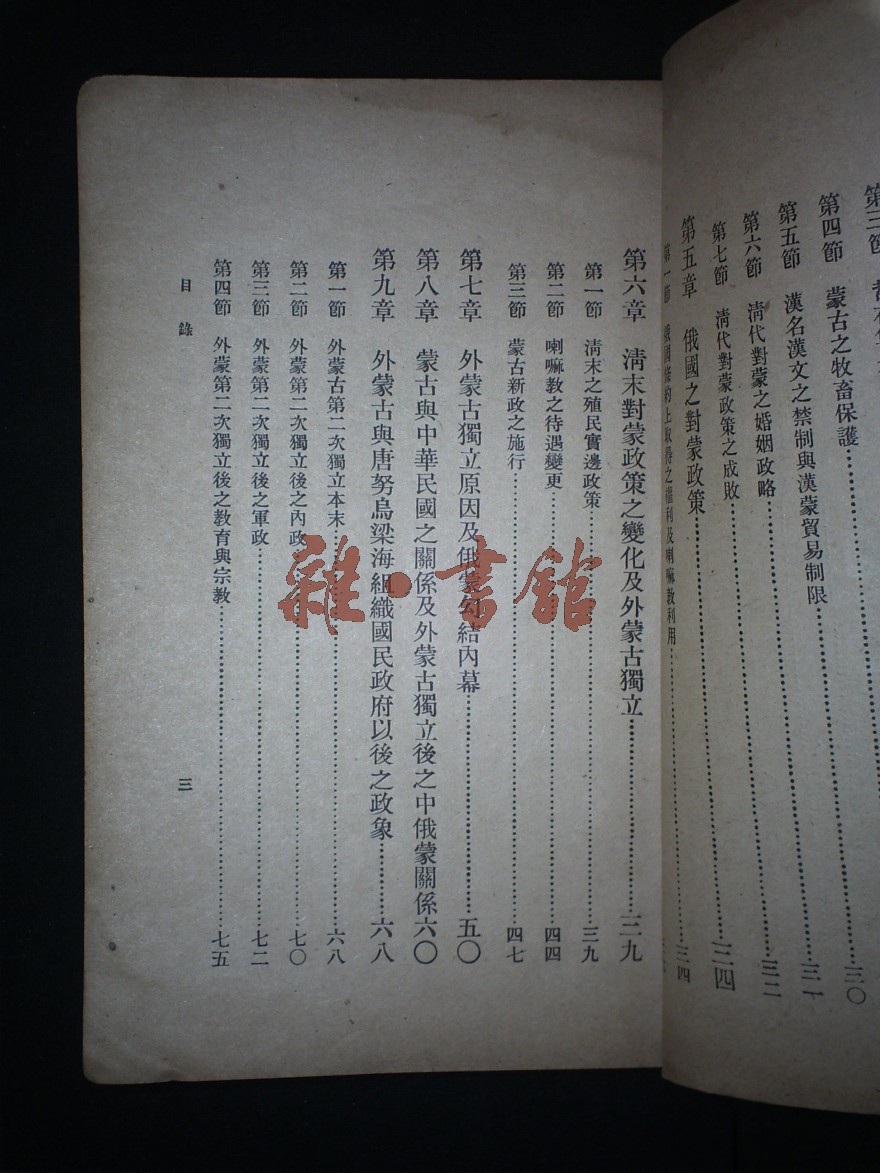 第三節
第四節 蒙古之牧畜保護……三〇
第五節 漢名漢文之禁制與漢蒙貿易制限……三一
第六節 清代對蒙之婚姻政略……三二
第七節 清代對蒙政策之成敗……三四
第五章 俄國之對蒙政策……三四
第一節 俄國條約上取得之權利及喇嘛教利用……
第六章 清末對蒙政策之變化及外蒙古獨立……三九
第一節 清末之殖民實邊政策……三九
第二節 喇嘛教之待遇變更……四四
第三節 蒙古新政之施行……四七
第七章 外蒙古獨立原因及俄蒙勾結內幕……五〇
第八章 蒙古與中華民國之關係及外蒙古獨立後之中俄蒙關係六〇
第九章 外蒙古與唐努烏梁海組織國民政府以後之政象……六八
第一節 外蒙古第二次獨立本末……六八
第二節 外蒙第二次獨立後之內政……七〇
第三節 外蒙第二次獨立後之軍政……七二
第四節 外蒙第二次獨立後之教育與宗教……七五
目錄 三
雜·書館